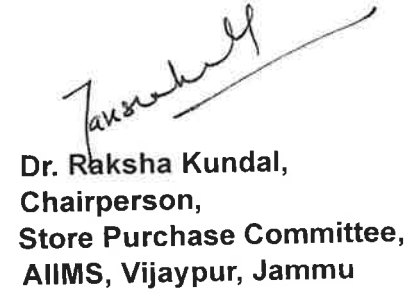 Dr. Raksha Kundal,
Chairperson,
Store Purchase Committee,
AIIMS, Vijaypur, Jammu